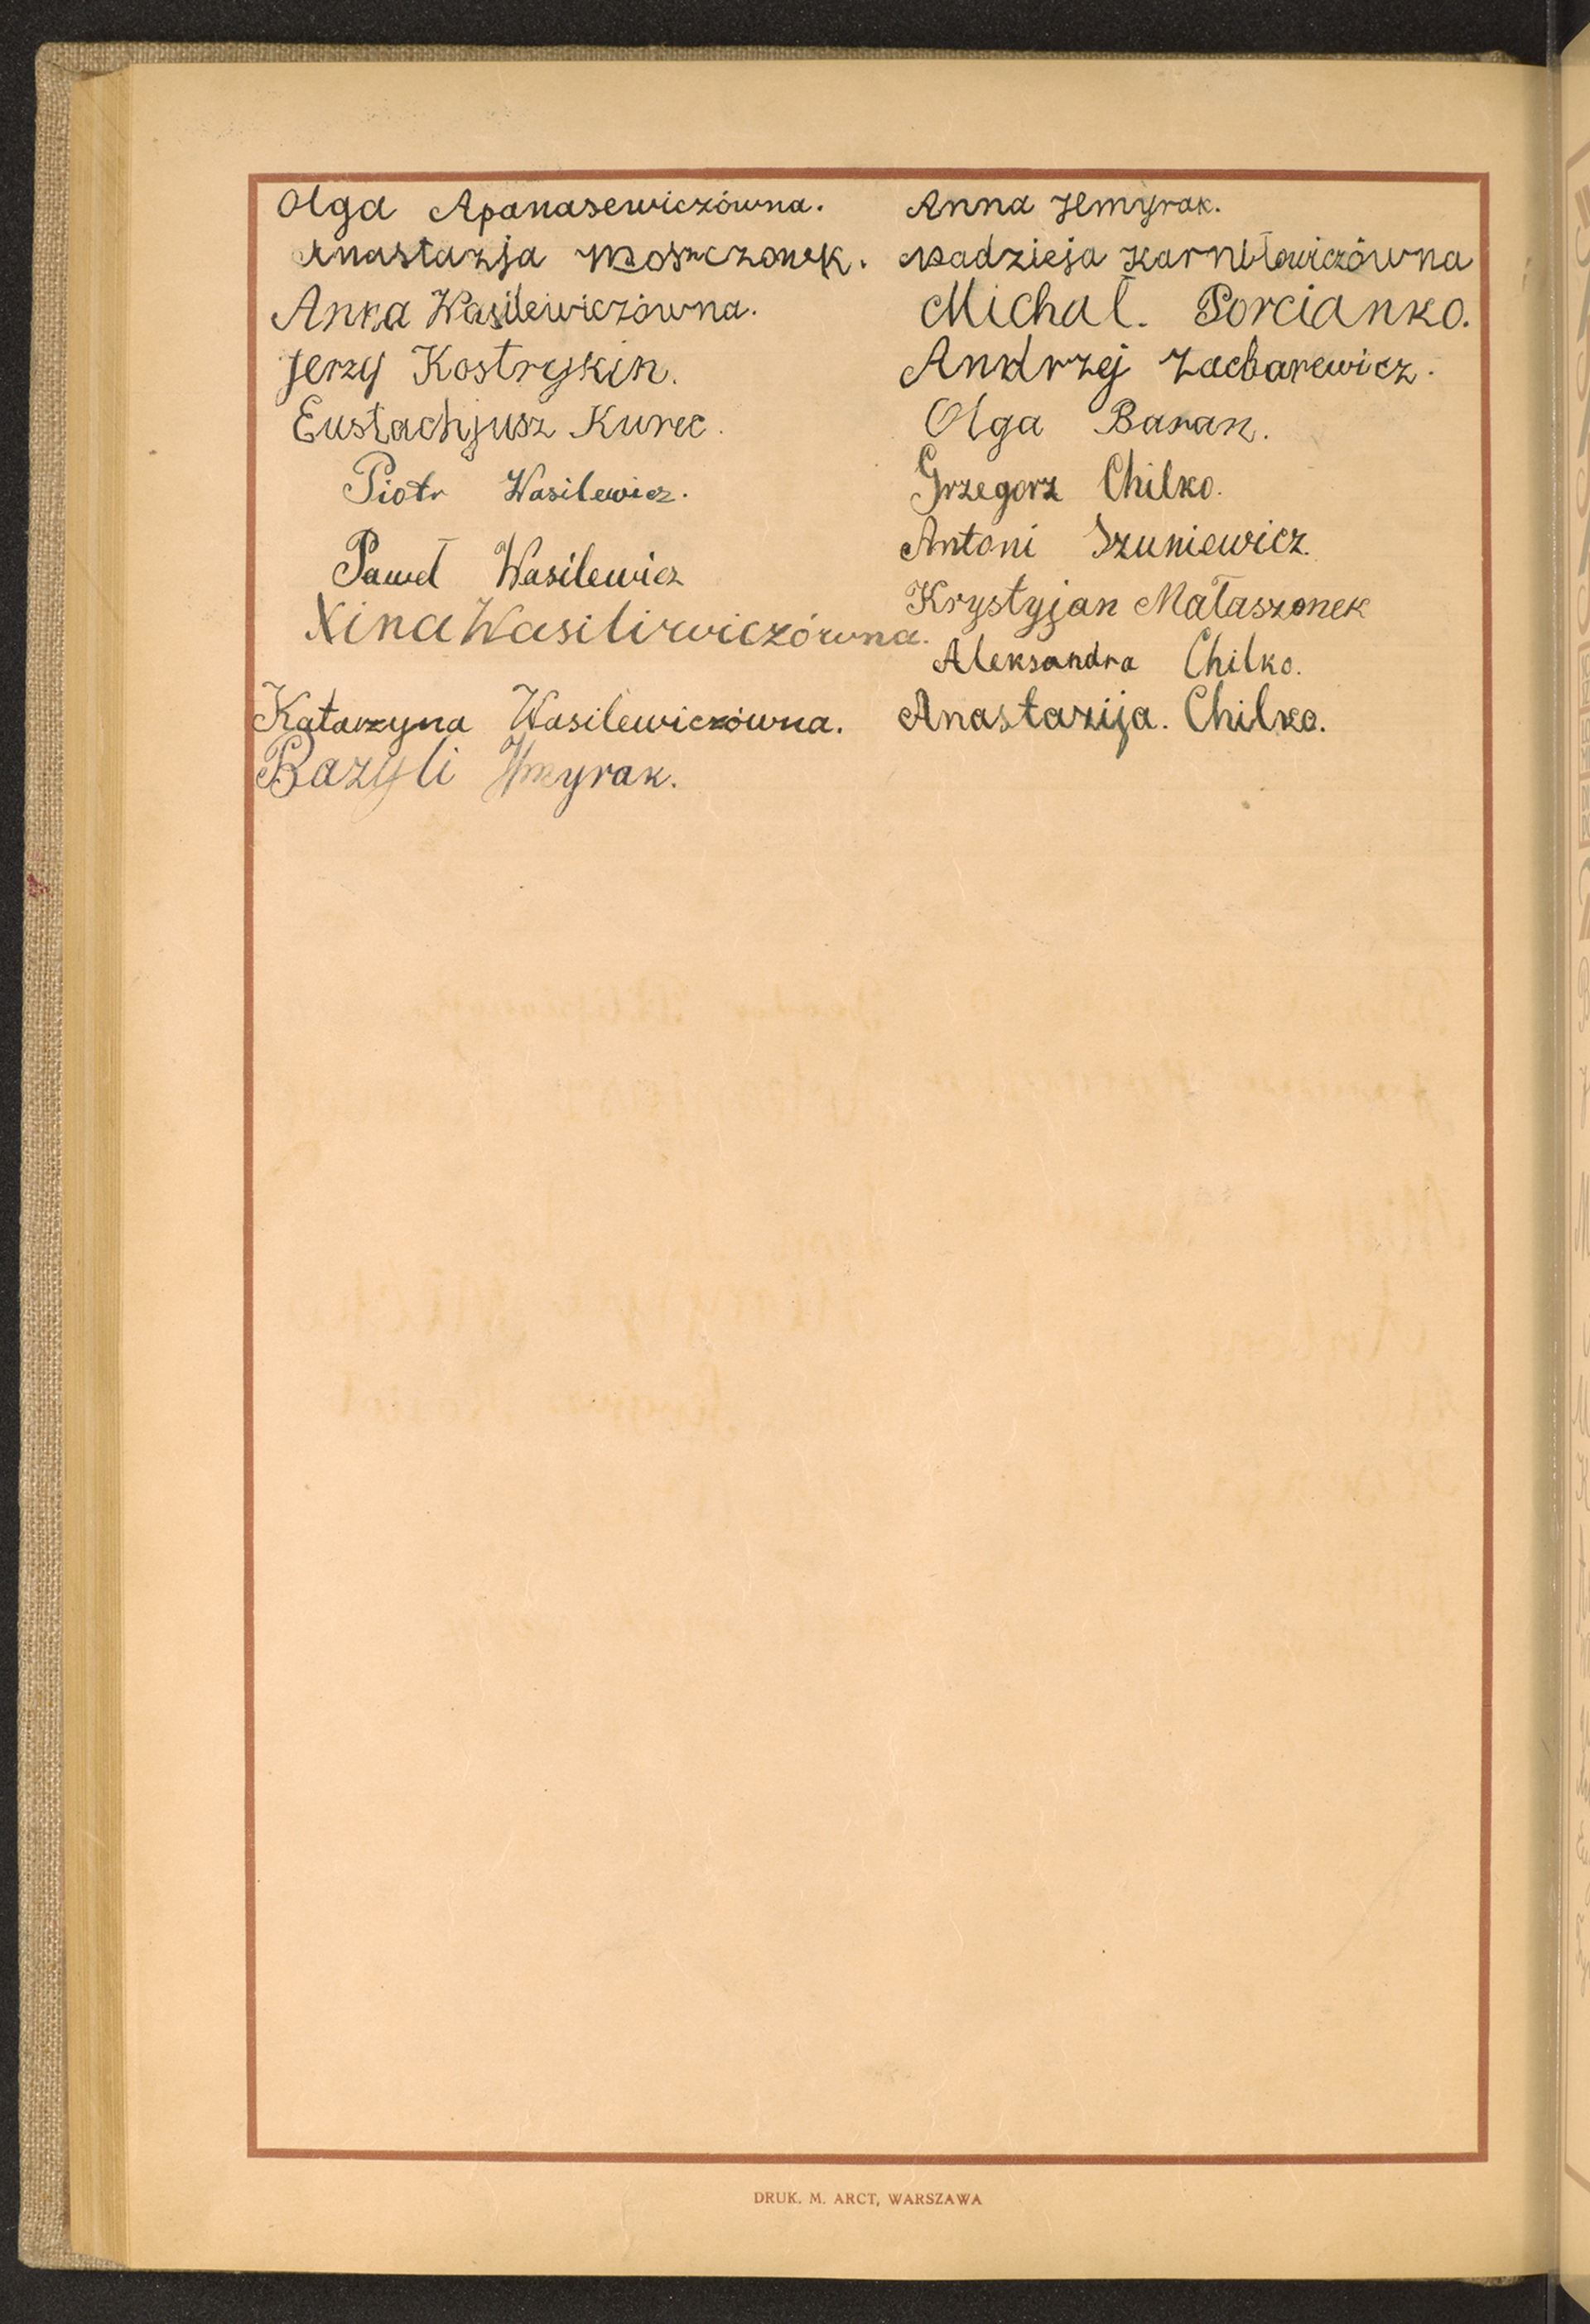 Olga Apanasewiczówna.
Anastazja Moszczonek.
Anna Wasilewiczówna.
Jerzy Kostrykin.
Eustachjusz Kurec.
Piotr Wasilewicz.
Paweł Wasilewicz
Nina Wasiliewiczówna.
Katarzyna Wasilewiczówna.
Bazyli Hmyrak.
Anna Hmyrak.
Nadzieja Karniłowiczówna
Michał. Porcianko.
Andrzej Zacharewicz.
Olga Baran.
Grzegorz Chilko.
Antoni Szuniewicz.
Krystyjan Małaszonek
Aleksandra Chilko.
Anastazija. Chilko.
DRUK. M. ARCT, WARSZAWA